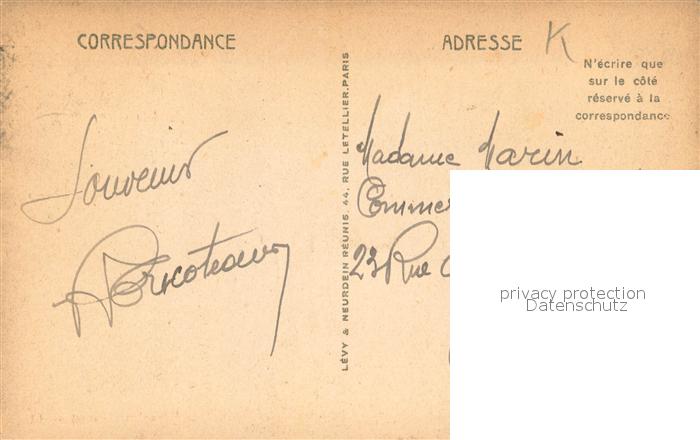 CORRESPONDANCE
ADRESSE
K
N'écrire que
sur le côté
réservé à la
correspondance
Souvenir
LÉVY & NEURDEIN RÉUNIS. 44, RUE LETELLIER. PARIS
Madame Marin
23 Rue
privacy protection
Datenschutz